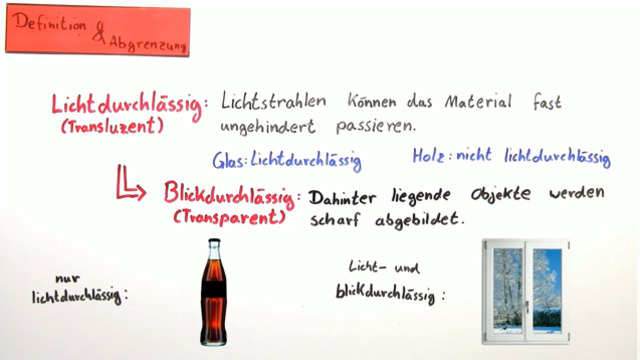 Definition & Abgrenzung
Lichtdurchlässig: Lichtstrahlen können das Material fast
(Transluzent) ungehindert passieren.
Glas: Lichtdurchlässig Holz: nicht lichtdurchlässig
Blickdurchlässig: Dahinter liegende Objekte werden
(Transparent) scharf abgebildet.
nur
lichtdurchlässig:
Licht- und
blickdurchlässig: